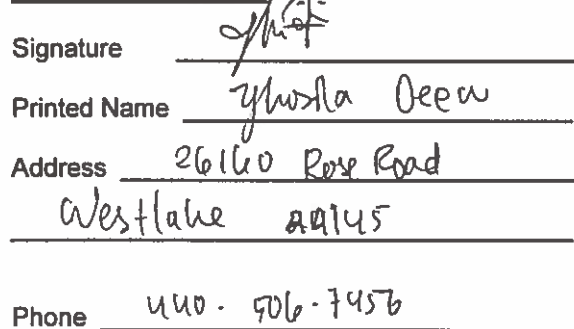 Signature
Printed Name
Address 26140 Rose Road
Westlake 44145
Phone 440. 506. 7456